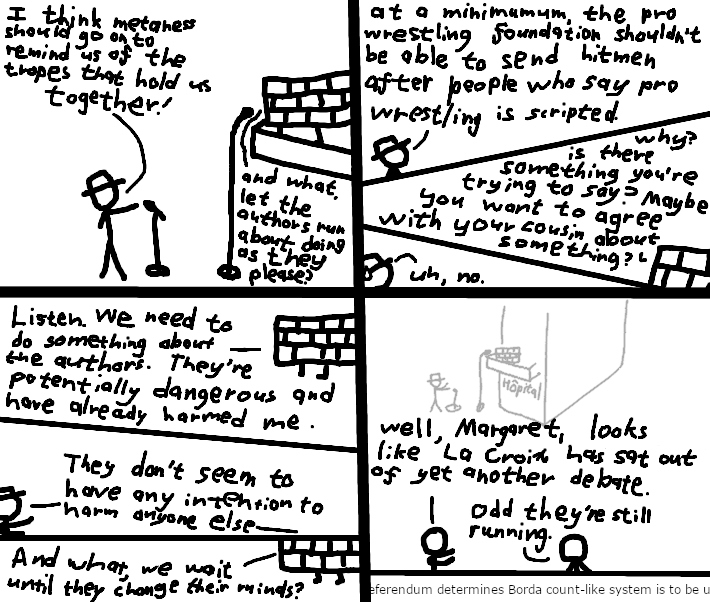 I think metaness
should go on to
remind us of the
tropes that hold us
together!
and what,
let the
authors run
about doing
as they
please?
at a minimumum, the pro
wrestling foundation shouldn't
be able to send hitmen
after people who say pro
wrestling is scripted.
why?
is there
something you're
trying to say? Maybe
you want to agree
with your cousin about
something?
uh, no.
Listen. We need to
do something about
the authors. They're
potentially dangerous and
have already harmed me.
They don't seem to
have any intention to
harm anyone else
And what, we wait
until they change their minds?
Hôpital
well, Margaret, looks
like La Croix has sat out
of yet another debate.
odd they're still
running.
eferendum determines Borda count-like system is to be u